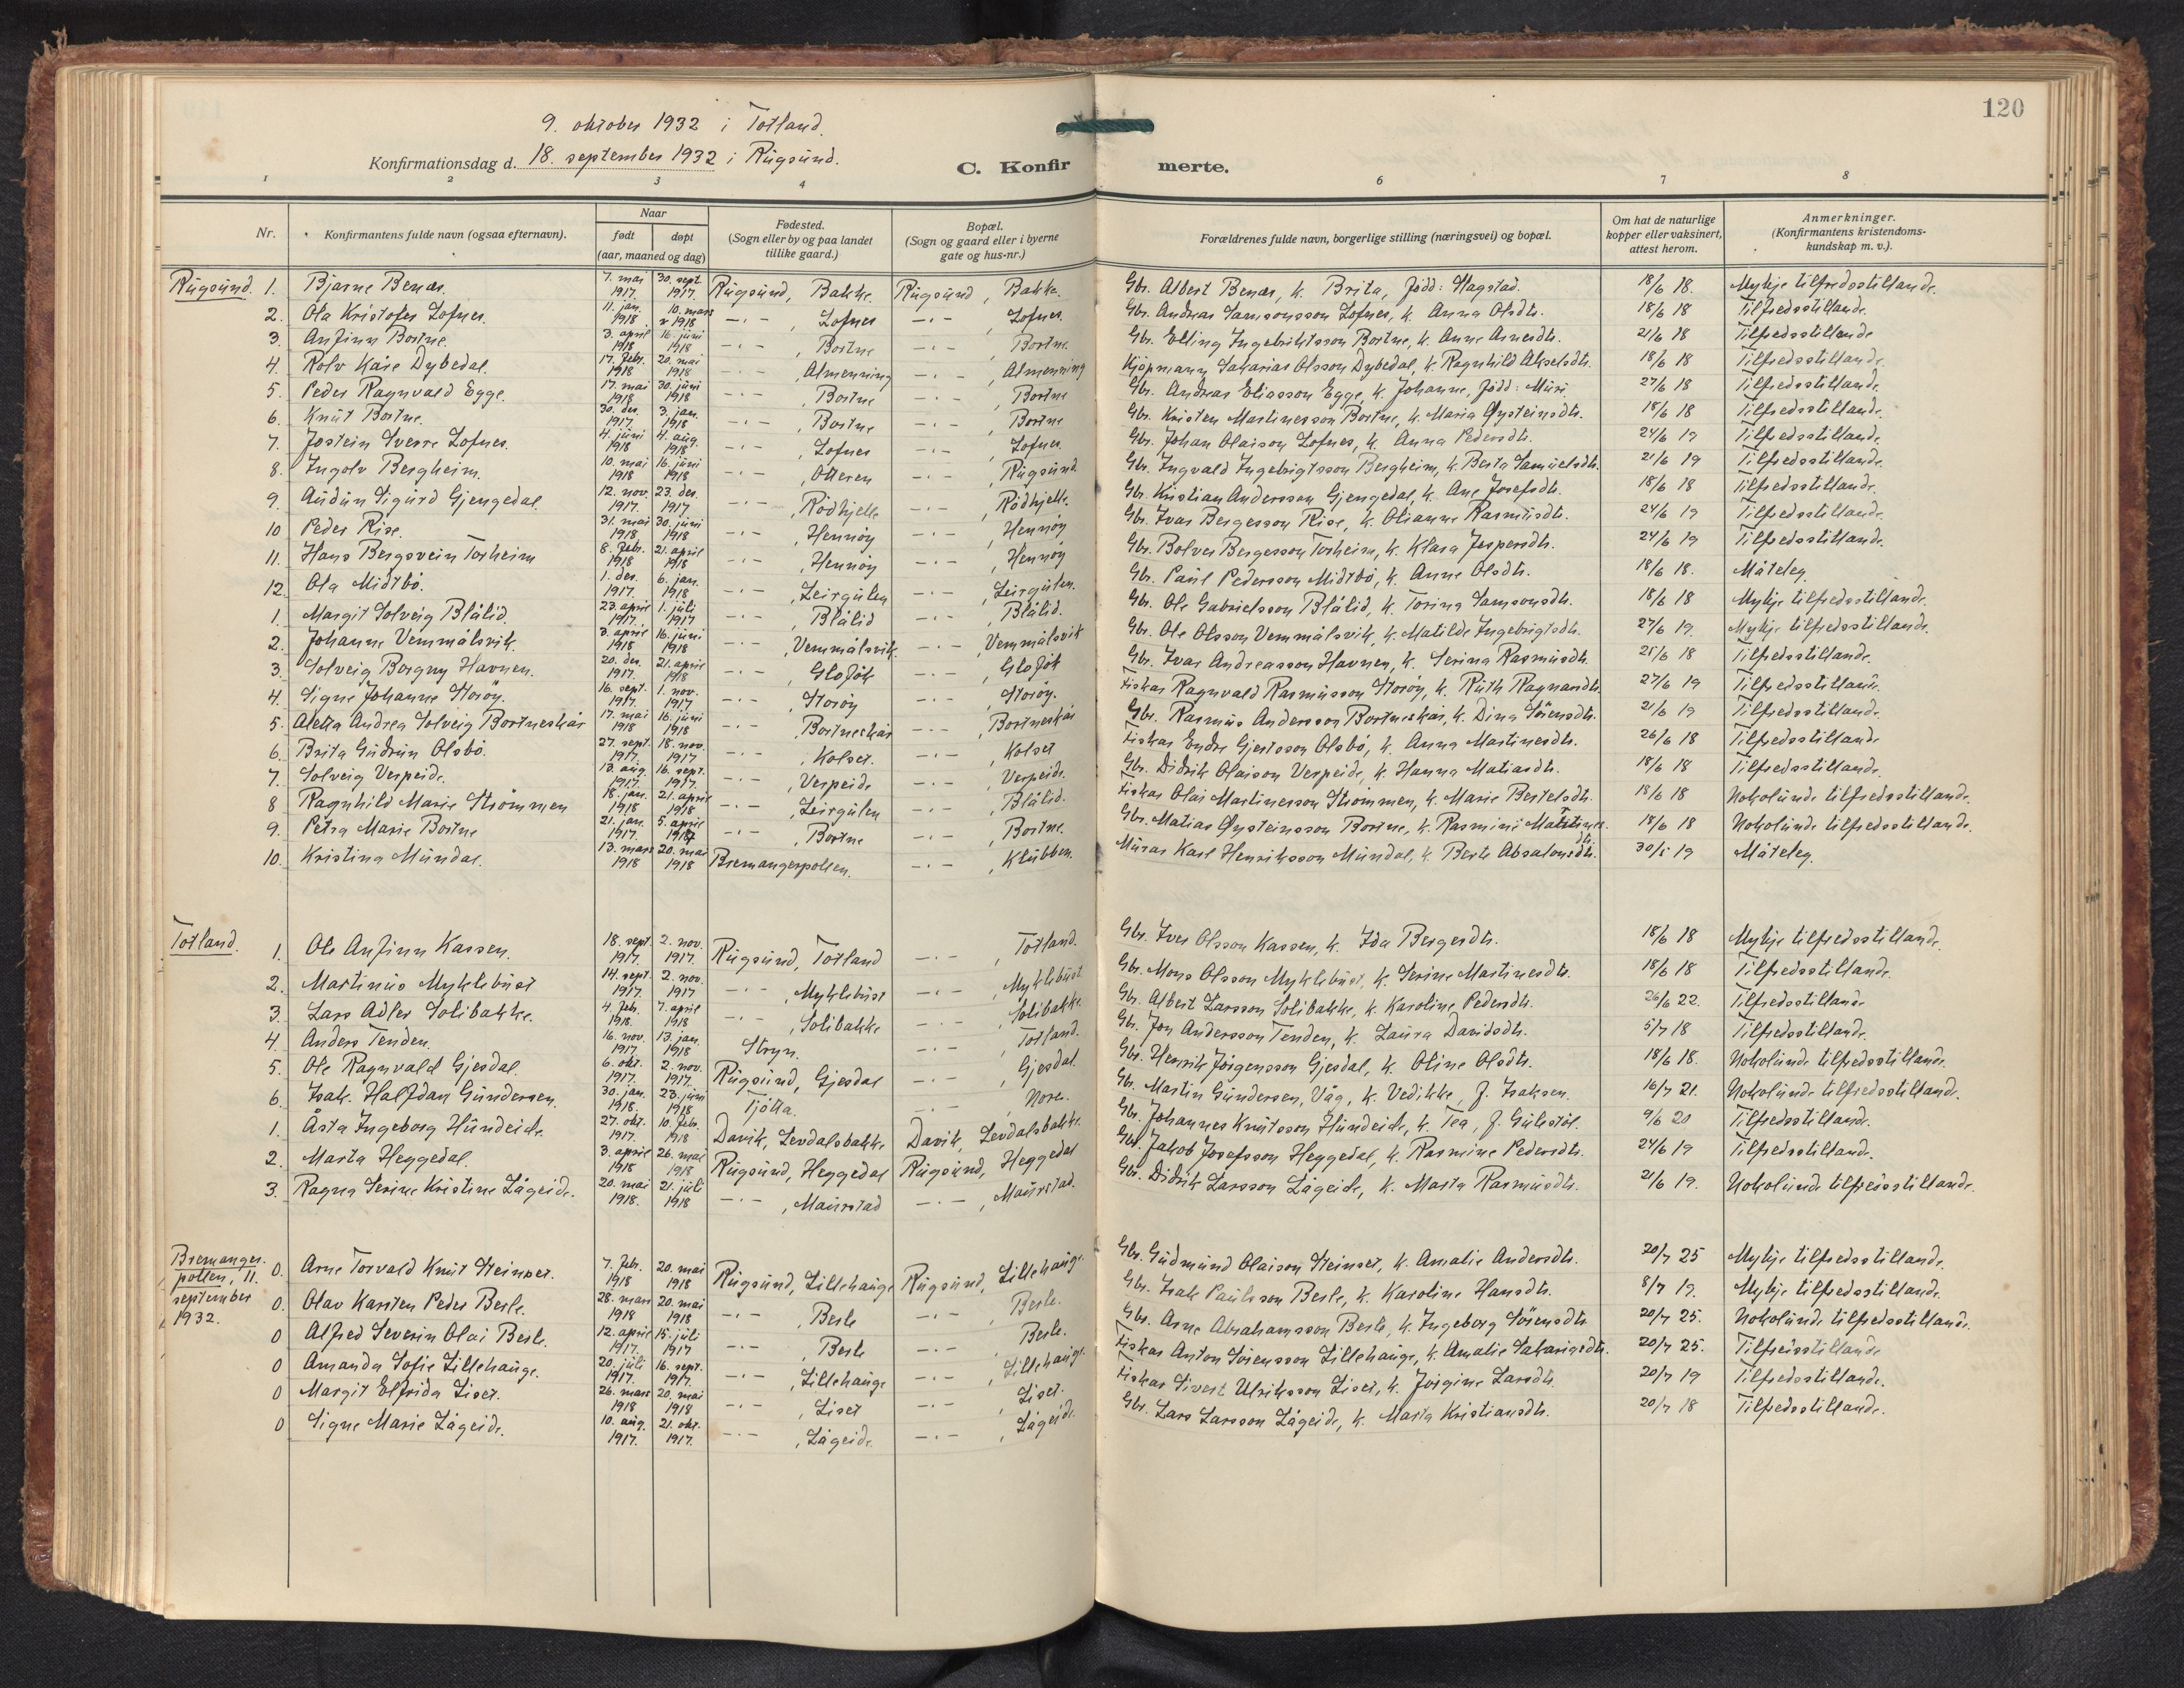 120
9. oktober 1932 i Totland.
Konfirmationsdag d. 18. september 1932 i Rugsund.
C. Konfirmerte.
1 2 3 4 6 7 8
Nr. Konfirmantens fulde navn (ogsaa efternavn). Naar født døpt (aar, maaned og dag) Fødested. (Sogn eller by og paa landet tillike gaard.) Bopæl. (Sogn og gaard eller i byerne gate og hus-nr.) Forældrenes fulde navn, borgerlige stilling (næringsvei) og bopæl. Om hat de naturlige kopper eller vaksinert, attest herom. Anmerkninger. (Konfirmantens kristendoms-kundskap m. v.).
Rugsund. 1. Bjarne Benæs. 7. mai 1917. 30. sept. 1917. Rugsund, Bakke. Rugsund, Bakke. Gbr. Albert Benæs, k. Brita, född: Hagstad. 18/6 18. Mykje tilfredsstillande.
2. Ola Kristofer Lofnes. 11. jan. 1918 10. mars 1918 —·— , Lofnes —·— , Lofnes. Gbr. Andreas Samsonsson Lofnes, k. Anna Olsdtr. 18/6 18 Tilfredsstillande.
3. Anfinn Bortne. 3. april 1918 16. juni 1918 —·— , Bortne —·— , Bortne. Gbr. Elling Ingebriktsson Bortne, k. Anne Arnesdtr. 21/6 18 Tilfredsstillande
4. Rolv Kåre Dybedal. 17. febr. 1918 20. mai 1918 —·— , Almenning —·— , Almenning Kjøpmann Sakarias Olsson Dybedal, k. Ragnhild Akselsdtr. 18/6 18 Tilfredsstillande.
5. Peder Ragnvald Egge. 17. mai 1918 30. juni 1918 —·— , Bortne —·— , Bortne Gbr. Andreas Eliasson Egge, k. Johanne, född: Muri 27/6 18 Tilfredsstillande.
6. Knut Bortne. 30. des. 1917. 3. jan. 1918 —·— , Bortne —·— , Bortne Gbr. Kristen Martinusson Bortne, k. Maria Øysteinsdtr. 18/6 18 Tilfredsstillande.
7. Jostein Sverre Lofnes. 4. juni 1918 4. aug. 1918 —·— , Lofnes —·— , Lofnes. Gbr. Johan Olaison Lofnes, k. Anna Pedersdtr. 24/6 19 Tilfredsstillande.
8. Ingolv Bergheim. 10. mai 1918 16. juni 1918 —·— , Otteren —·— , Rugsund Gbr. Ingvald Ingebrigtsson Bergheim, k. Berta Samuelsdtr. 21/6 19 Tilfredsstillande.
9. Audun Sigurd Gjengedal. 12. nov. 1917. 23. des. 1917 —·— , Rödhjelle —·— , Rödhjelle. Gbr. Kristian Andersson Gjengedal, k. Ane Josefsdtr. 18/6 18 Tilfredsstillande.
10 Peder Rise. 31. mai 1918 30. juni 1918 —·— , Hennöy —·— , Hennöy Gbr. Ivar Bergesson Rise, k. Olianne Rasmusdtr. 24/6 19 Tilfredsstillande.
11. Hans Bergsvein Torheim 8. febr. 1918 21. april 1918 —·— , Hennöy —·— , Hennöy Gbr. Bolver Bergesson Torheim, k. Klara Jespersdtr. 24/6 19 Tilfredsstillande.
12. Ola Midtbö. 1. des. 1917. 6. jan. 1918 —·— , Leirgulen —·— , Leirgulen. Gbr. Paul Pedersson Midtbö, k. Anne Olsdtr. 18/6 18. Måteleg
1. Margit Solveig Blålid. 23. april 1917. 1. juli 1917 —·— , Blålid —·— , Blålid. Gbr. Ole Gabrielsson Blålid, k. Torina Samsonsdtr. 18/6 18 Mykje tilfredsstillande.
2. Johanne Vemmålsvik. 3. april 1918 16. juni 1918 —·— , Vemmålsvik —·— , Vemmålsvik Gbr. Ole Olsson Vemmålsvik, k. Matilde Ingebrigtsdtr. 27/6 19. Mykje tilfredsstillande.
3. Solveig Borgny Havnen. 20. des. 1917. 21. april 1918 —·— , Glofök —·— , Glofök Gbr. Ivar Andreasson Havnen, k. Serina Rasmusdtr. 25/6 18 Tilfredsstillande.
4. Signe Johanne Storöy. 16. sept. 1917. 1. nov. 1917 —·— , Storöy —·— , Storöy. Fiskar Ragnvald Rasmusson Storöy, k. Ruth Ragnarsdtr. 27/6 19 Tilfredsstillande.
5. Aletta Andrea Solveig Bortneskår 17. mai 1918 16. juni 1918 —·— , Bortneskår —·— , Bortneskår Gbr. Rasmus Andersson Bortneskår, k. Dina Sörensdtr. 21/6 19 Tilfredsstillande.
6. Brita Gudrun Olsbö. 27. sept. 1917. 18. nov. 1917 —·— , Kolset. —·— , Kolset Fiskar Endre Gjertsson Olsbö, k. Anna Martinesdtr. 26/6 18 Tilfredsstillande
7. Solveig Verpeide. 13. aug. 1917. 16. sept. 1917. —·— , Verpeide —·— , Verpeide. Gbr. Didrik Olaison Verpeide, k. Hanna Matiasdtr. 18/6 18 Tilfredsstillande.
8 Ragnhild Marie Strömmen 18. jan. 1918 21. april 1918 —·— , Leirgulen —·— , Blålid. Fiskar Olai Martinusson Strömmen, k. Marie Bertelsdtr. 18/6 18 Nokolunde tilfredsstillande.
9. Petra Marie Bortne 21. jan. 1917. 5. april 1917 —·— , Bortne —·— , Bortne. Gbr. Matias Øysteinsson Bortne, k. Rasmine Martinesdtr. 18/6 18 Nokolunde tilfredsstillande.
10. Kristina Mundal. 13. mars 1918 20. mai 1918 Bremangerpollen. —·— , Klubben. Murar Karl Henriksson Mundal, k. Berte Absalonsdtr. 30/5 19 Måteleg.
Totland. 1. Ole Anfinn Kassen. 18. sept. 1917. 2. nov. 1917. Rugsund, Totland —·— , Totland. Gbr. Iver Olsson Kassen, k. Ida Bergesdtr. 18/6 18 Mykje tilfredsstillande.
2. Martinus Myklebust 14. sept. 1917. 2. nov. 1917 —·— , Myklebust —·— , Myklebust. Gbr. Mons Olsson Myklebust, k. Serine Martinesdtr. 18/6 18 Tilfredsstillande.
3. Lars Adler Solibakke. 4. febr. 1918. 7. april 1918 —·— , Solibakke —·— , Solibakke. Gbr. Albert Larsson Solibakke, k. Karoline Pedersdtr. 26/6 22. Tilfredsstillande
4. Anders Tenden. 16. nov. 1917 13. jan. 1918 Stryn. —·— , Totland. Gbr. Jon Andersson Tenden, k. Laura Davidsdtr. 5/7 18 Tilfredsstillande.
5. Ole Ragnvald Gjesdal. 6. okt. 1917. 2. nov. 1917. Rugsund, Gjesdal —·— , Gjesdal. Gbr. Henrik Jörgensson Gjesdal, k. Oline Olsdtr. 18/6 18. Nokolunde tilfredsstillande.
6. Isak Halfdan Gundersen. 30. jan. 1918. 23. juni 1918 Tjötta. —·— , Nore. Gbr. Martin Gundersen, Våg, k. Vedikke, f. Isaksen. 16/7 21. Nokolunde tilfredsstillande.
1. Åsta Ingeborg Hundeide. 27. okt. 1917. 10. febr. 1918 Davik, Levdalsbakke Davik, Levdalsbakke. Gbr. Johannes Knutsson Hundeide, k. Tea, f. Gulestöl. 9/6 20 Tilfredsstillande.
2. Marta Heggedal. 3. april 1918 26. mai 1918 Rugsund, Heggedal Rugsund, Heggedal Gbr. Jakob Josefsson Heggedal, k. Rasmine Pedersdtr. 24/6 19 Tilfredsstillande.
3. Ragna Serine Kristine Lågeide. 20. mai 1918. 21. juli 1918 —·— , Maurstad —·— , Maurstad. Gbr. Didrik Larsson Lågeide, k. Marta Rasmusdtr. 21/6 19. Nokolunde tilfredsstillande.
Bremanger-pollen, 11. september 1932. 0. Arne Torvald Knut Steinset. 7. febr. 1918 20. mai 1918 Rugsund, Lillehauge Rugsund, Lillehauge. Gbr. Gudmund Olaison Steinset, k. Amalie Andersdtr. 20/7 25 Mykje tilfredsstillande.
0. Olav Karsten Peder Berle. 28. mars 1918 20. mai 1918 —·— , Berle —·— , Berle. Gbr. Isak Paulsson Berle, k. Karoline Hansdtr. 8/7 19. Mykje tilfredsstillande.
0 Alfred Severin Olai Berle. 12. april 1917. 15. juli 1917 —·— , Berle —·— , Berle. Gbr. Arne Abrahamsson Berle, k. Ingeborg Sörensdtr. 20/7 25. Nokolunde tilfredsstillande.
0 Amanda Sofie Lillehauge. 20. juli 1917. 16. sept. 1917. —·— , Lillehauge —·— , Lillehauge. Fiskar Anton Sörensson Lillehauge, k. Amalie Sakariasdtr. 20/7 25. Tilfredsstillande
0 Margit Elfrida Liset. 26. mars 1918 20. mai 1918 —·— , Liset —·— , Liset. Fiskar Sivert Ulriksson Liset, k. Jörgine Larsdtr. 20/7 19 Tilfredsstillande.
0 Signe Marie Lågeide. 10. aug. 1917. 21. okt. 1917. —·— , Lågeide. —·— , Lågeide. Gbr. Lars Larsson Lågeide, k. Marta Kristiansdtr. 20/7 18 Tilfredsstillande.